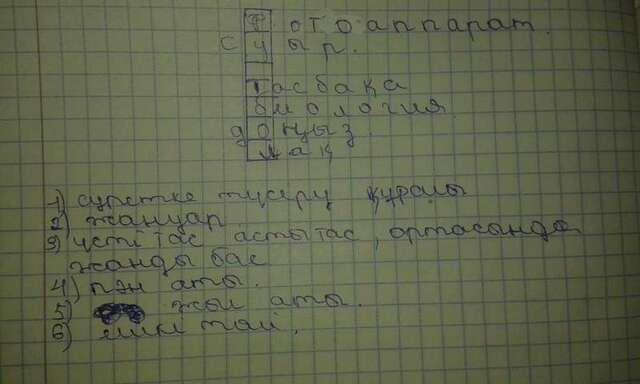 Фотоаппарат.
суыр.
Тасбақа
биология
доңыз
лақ
1) суретке түсеру құралы
2) жануар
3) үсті тас асты тас, ортасында
жанды бас
4) пән аты.
5) жыл аты.
6)